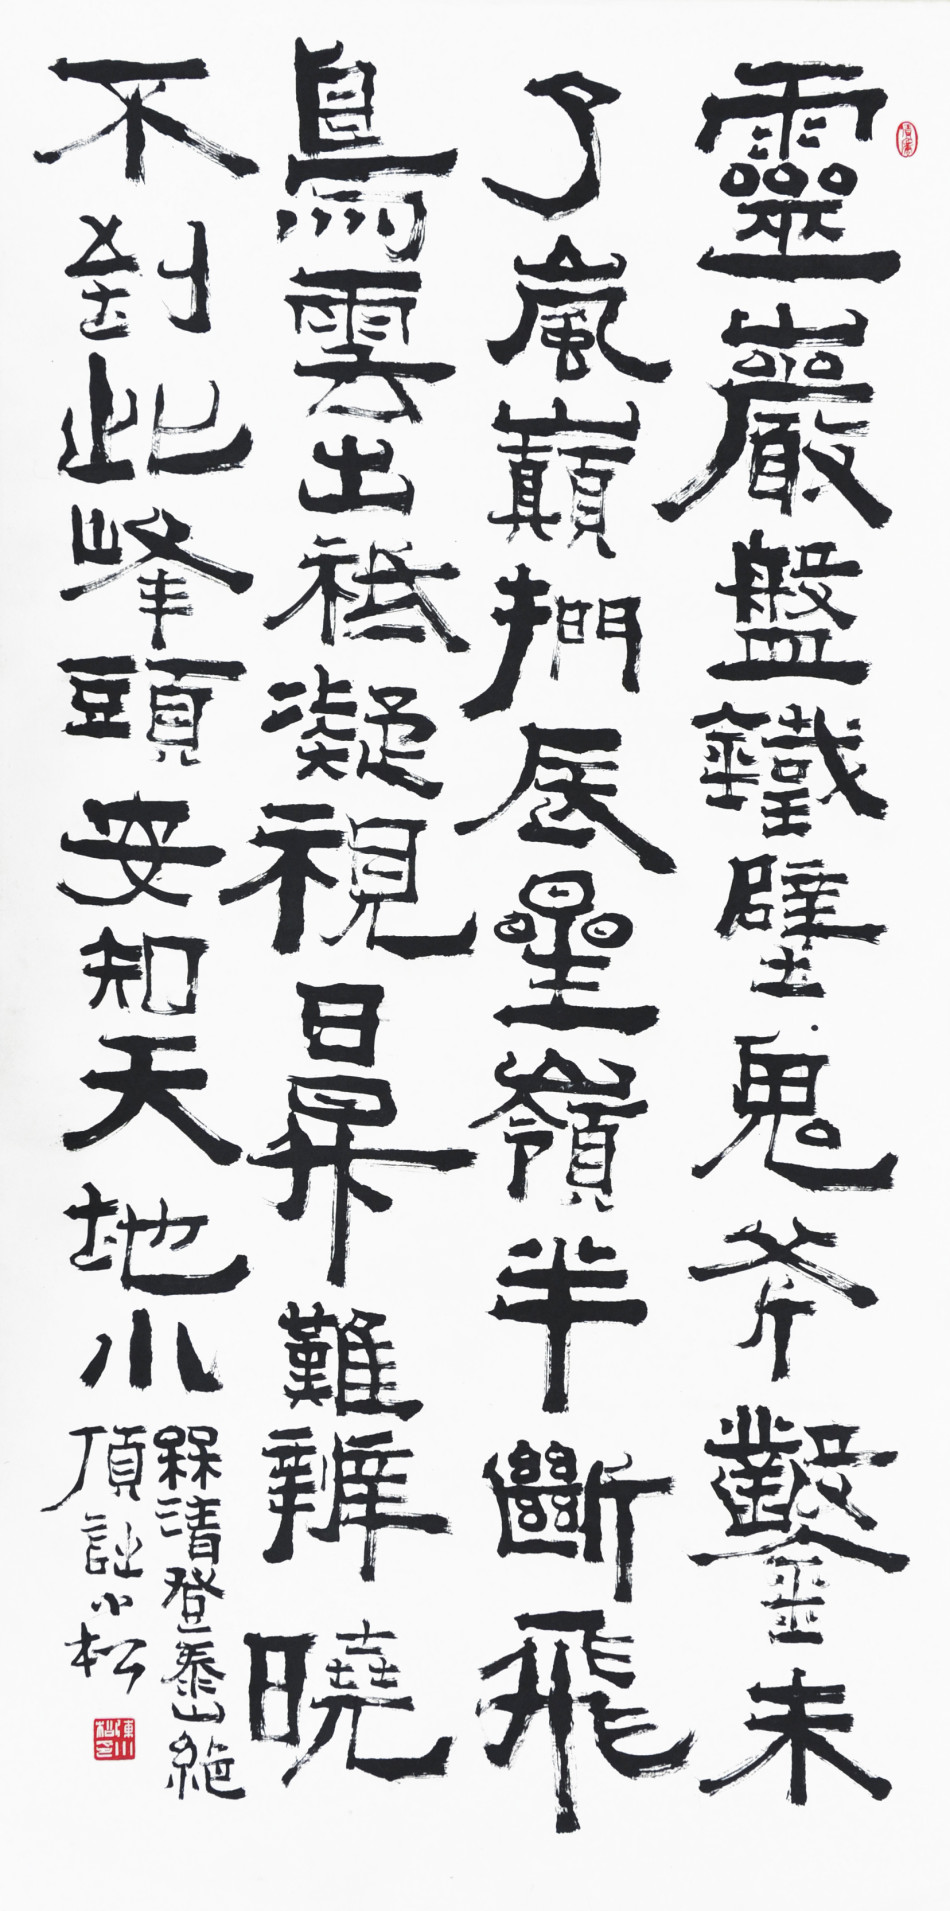 靈巖盤鐵壁鬼斧鑿未
了嵐巔捫辰星嶺半斷飛
鳥雲出祗凝視日昇難辨曉
不到此峰頭安知天地小
槑清登泰山絕
頂詩小松